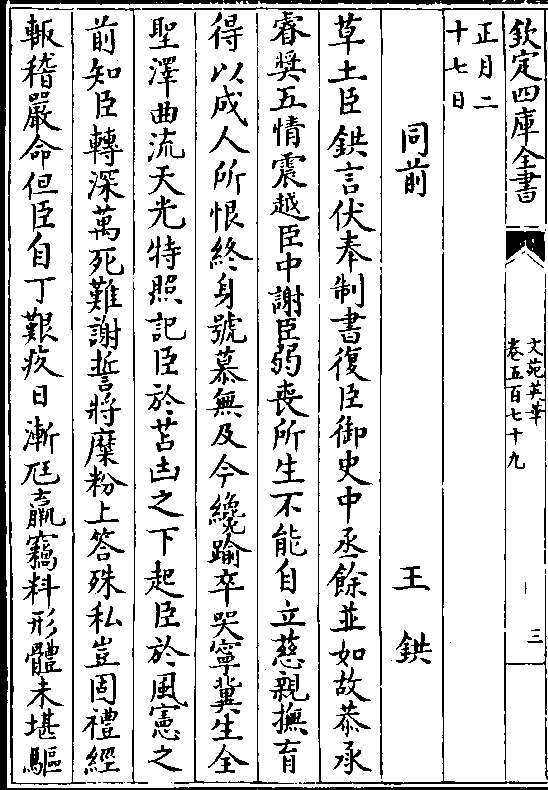 欽定四庫全書
文苑英華
卷五百七十九
三
正月二
十七日
同前
王鉷
草土臣鉷言伏奉制書復臣御史中丞餘並如故恭承
睿奬五情震越臣中謝臣弱喪所生不能自立慈親撫育
得以成人所恨終身號慕無及今纔踰卒哭寧冀生全
聖澤曲流天光特照記臣於苫凷之下起臣於風憲之
前知臣轉深萬死難謝誓將糜粉上答殊私豈固禮經
輙稽嚴命但臣自丁艱疚日漸尫羸竊料形體未堪驅